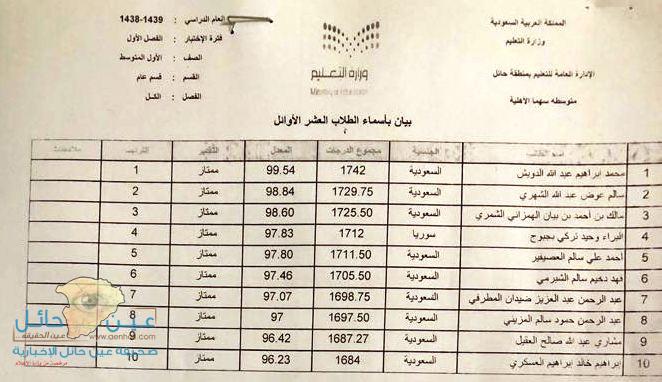 المملكة العربية السعودية
وزارة التعليم
الإدارة العامة للتعليم بمنطقة حائل
متوسطه سهما الأهلية
وزارة التعليم
Ministry of Education
العام الدراسي : 1438-1439
فترة الإختبار : الفصل الأول
الصف : الأول المتوسط
القسم : قسم عام
الفصل : الكل
بيان بأسماء الطلاب العشر الأوائل
اسم الطالب الجنسية مجموع الدرجات المعدل التقدير الترتيب ملاحظات
1 محمد ابراهيم عبد الله الدويش السعودية 1742 99.54 ممتاز 1
2 سالم عوض عبد الله الشهري السعودية 1729.75 98.84 ممتاز 2
3 مالك بن أحمد بن بيان الهمزاني الشمري السعودية 1725.50 98.60 ممتاز 3
4 البراء وحيد تركي بجبوج سوريا 1712 97.83 ممتاز 4
5 أحمد علي سالم العصيفير السعودية 1711.50 97.80 ممتاز 5
6 فهد دخيم سالم الشبرمي السعودية 1705.50 97.46 ممتاز 6
7 عبد الرحمن عبد العزيز ضيدان المطرفي السعودية 1698.75 97.07 ممتاز 7
8 عبد الرحمن حمود سالم المزيني السعودية 1697.50 97 ممتاز 8
9 مشاري عبد الله صالح العقيل السعودية 1687.27 96.42 ممتاز 9
10 إبراهيم خالد إبراهيم العسكري السعودية 1684 96.23 ممتاز 10
عين حائل
عين الحقيقة
صحيفة عين حائل الإخبارية